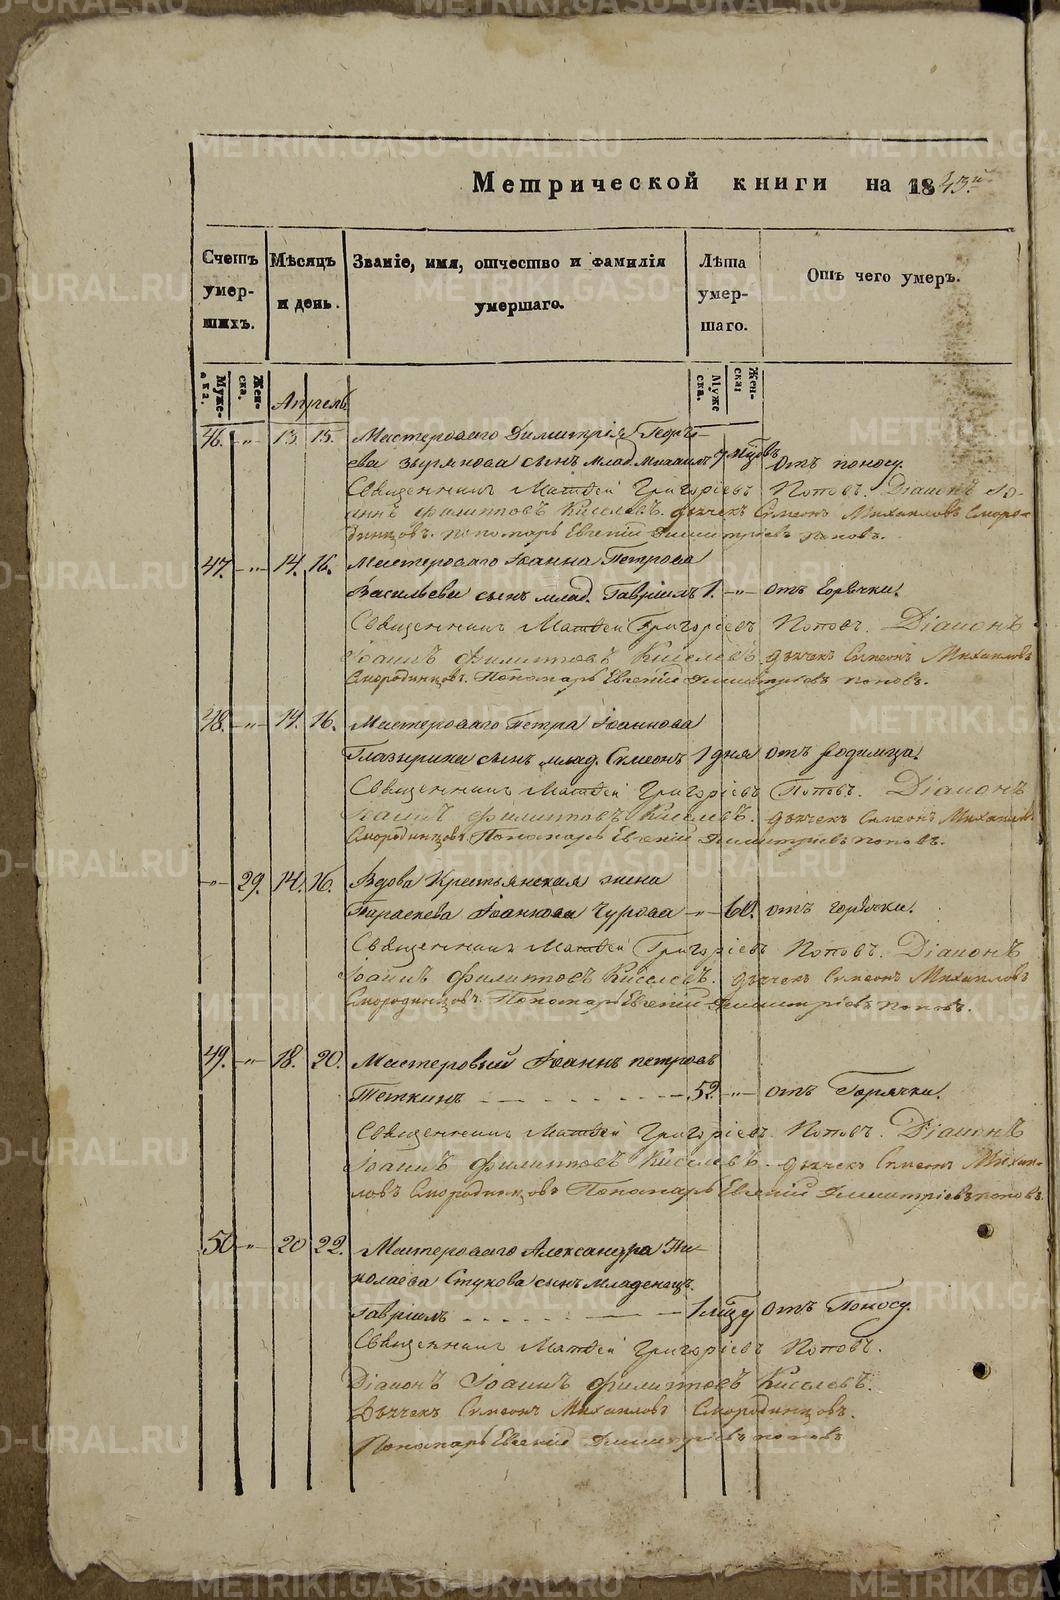 Метрической книги на 1843й
Счетъ умер- шихъ.
Мѣсяцъ и день.
Званіе, имя, отчество и фамилія умершаго.
Лѣта умер- шаго.
Отъ чего умеръ.
Муже- ска.
Жен- ска.
Апрель
Муже ска.
Жен- ска:
46. -„- 13 15. Мастероваго Димитрія Георгі-
ева сынъ млад. Михаилъ 7 мцовъ Отъ поносу.
Священникъ Матѳей Григорьевъ Поповъ. Діаконъ Іо-
аннъ Филиповъ Киселевъ. Дьячекъ Симеонъ Михаиловъ Сморо-
динцовъ. пономарь Евгеній Димитріевъ поповъ.
47. -„- 14. 16. Мастероваго Іоанна Петрова
Васильева сынъ млад. Гавріилъ 1. -„- отъ Горячки.
Священникъ Матѳей Григорьевъ Поповъ. Діаконъ
Іоаннъ Филиповъ Киселевъ. Дьячекъ Симеонъ Михаиловъ
Смородинцовъ. Пономарь Евгеній Димитріевъ поповъ.
48. -„- 14. 16. Мастероваго Петра Іоаннова
Глазырина сынъ млад. Симеонъ 1 дня отъ родимца.
Священникъ Матѳей Григорьевъ Поповъ. Діаконъ
Іоаннъ Филиповъ Киселевъ. Дьячекъ Симеонъ Михаиловъ
Смородинцовъ Пономарь Евгеній Димитріевъ поповъ.
-„- 29. 14. 16. Вдова Крестьянская жена
Параскева Іоаннова Чурова -„- 60. отъ горячки.
Священникъ Матѳей Григорьевъ Поповъ. Діаконъ
Іоаннъ Филиповъ Киселевъ. Дьячекъ Симеонъ Михаиловъ
Смородинцовъ. Пономарь Евгеній Димитріевъ поповъ.
49. -„- 18. 20. Мастеровый Іоаннъ петровъ
Теткинъ 52 -„- отъ Горячки.
Священникъ Матѳей Григорьевъ Поповъ. Діаконъ
Іоаннъ Филиповъ Киселевъ. Дьячекъ Симеонъ Михаи-
ловъ Смородинцовъ Пономарь Евгеній Димитріевъ поповъ.
50 -„- 20 22. Мастероваго Александра Ни-
колаева Стукова сынъ Младенецъ
Гавріилъ 1 мцу отъ Поносу.
Священникъ Матѳей Григорьевъ Поповъ.
Діаконъ Іоаннъ Филиповъ Киселевъ.
Дьячекъ Симеонъ Михаиловъ Смородинцовъ.
Пономарь Евгеній Димитріевъ поповъ
METRIKI.GASO-URAL.RU